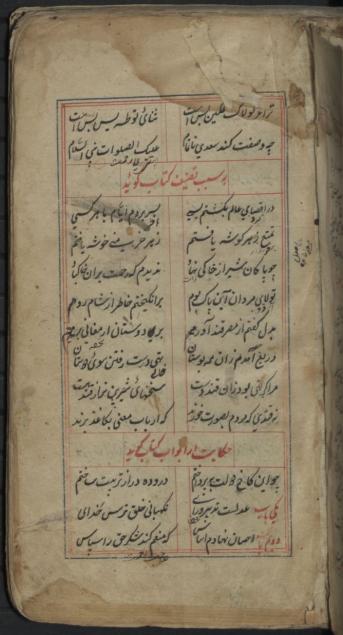 ترا عز لولاک تمکین بس است ثنای تو طه و یس بس است
چه وصفت کند سعدی ناتمام علیک الصلوات نبی السلام
بر سبب تصنیف کتاب گوید
در اقصای عالم بگشتم بسی بسر بردم ایام با هر کسی
تمتع ز هر گوشه یافتم ز هر خرمن خوشه یافتم
چو پاکان شیراز خاکی نهاد ندیدم که رحمت بران خاک باد
تولای مردان آن پاک بوم برانگیختم خاطر از شام و روم
بدل گفتم از مصر قند آورند بر دوستان ارمغانی برند
دریغ آمدم زان همه بوستان تهی دست رفتن سوی دوستان
مرا گر تهی بود زان قند دست سخنهای شیرین تر از قند هست
نه قندی که مردم بصورت خورند که ارباب معنی بکاغذ برند
حکایت در ابواب کتاب گوید
چو این کاخ دولت بپرداختم درو ده در از تربیت ساختم
یکی باب عدلست تدبیر و رای نگهبانی خلق و ترس خدای
دوم باب احسان نهادم اساس که منعم کند شکر حق را سپاس